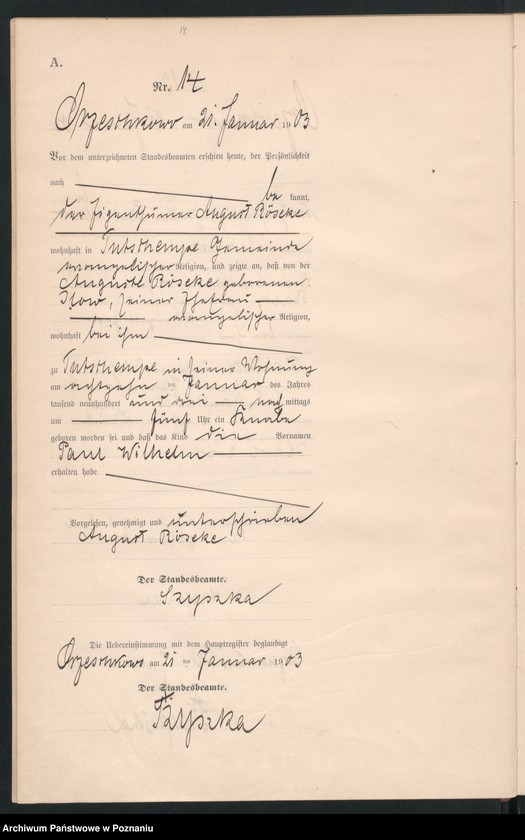 14
A.
Nr. 14
Orzeschkowo am 21. Januar 1903
Vor dem unterzeichneten Standesbeamten erschien heute, der Persönlichkeit
nach be kannt,
der Eigenthümer August Röseke
wohnhaft in Tutschempe Gemeinde
evangelischer Religion, und zeigte an, daß von der
Auguste Röseke geborenen
Ilow, seiner Ehefrau
evangelischer Religion,
wohnhaft bei ihm
zu Tutschempe in seiner Wohnung
am achtzehn ten Januar des Jahres
tausend neunhundert und drei nach mittags
um fünf Uhr ein Knabe
geboren worden sei und daß das Kind die Vornamen
Paul Wilhelm
erhalten habe.
Vorgelesen, genehmigt und unterschrieben
August Röseke
Der Standesbeamte.
Szyszka
Die Uebereinstimmung mit dem Hauptregister beglaubigt
Orzeschkowo am 21 ten Januar 1903
Der Standesbeamte.
Szyszka
Archiwum Państwowe w Poznaniu